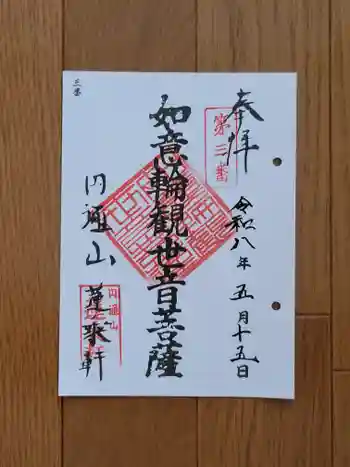 奉拝
第三番
令和八年五月十五日
如意輪觀世音菩薩
円通山
蓬莱軒
円通山
三番